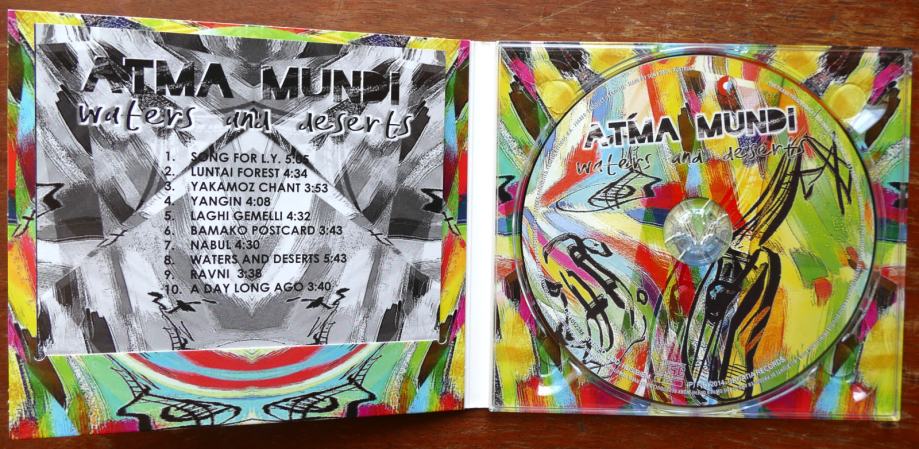 ATMA MUNDI
waters and deserts
1. SONG FOR L.Y. 5:05
2. LUNTAI FOREST 4:34
3. YAKAMOZ CHANT 3:53
4. YANGIN 4:08
5. LAGHI GEMELLI 4:32
6. BAMAKO POSTCARD 3:43
7. NABUL 4:30
8. WATERS AND DESERTS 5:43
9. RAVNI 3:38
10. A DAY LONG AGO 3:40
ATMA MUNDI
waters and deserts